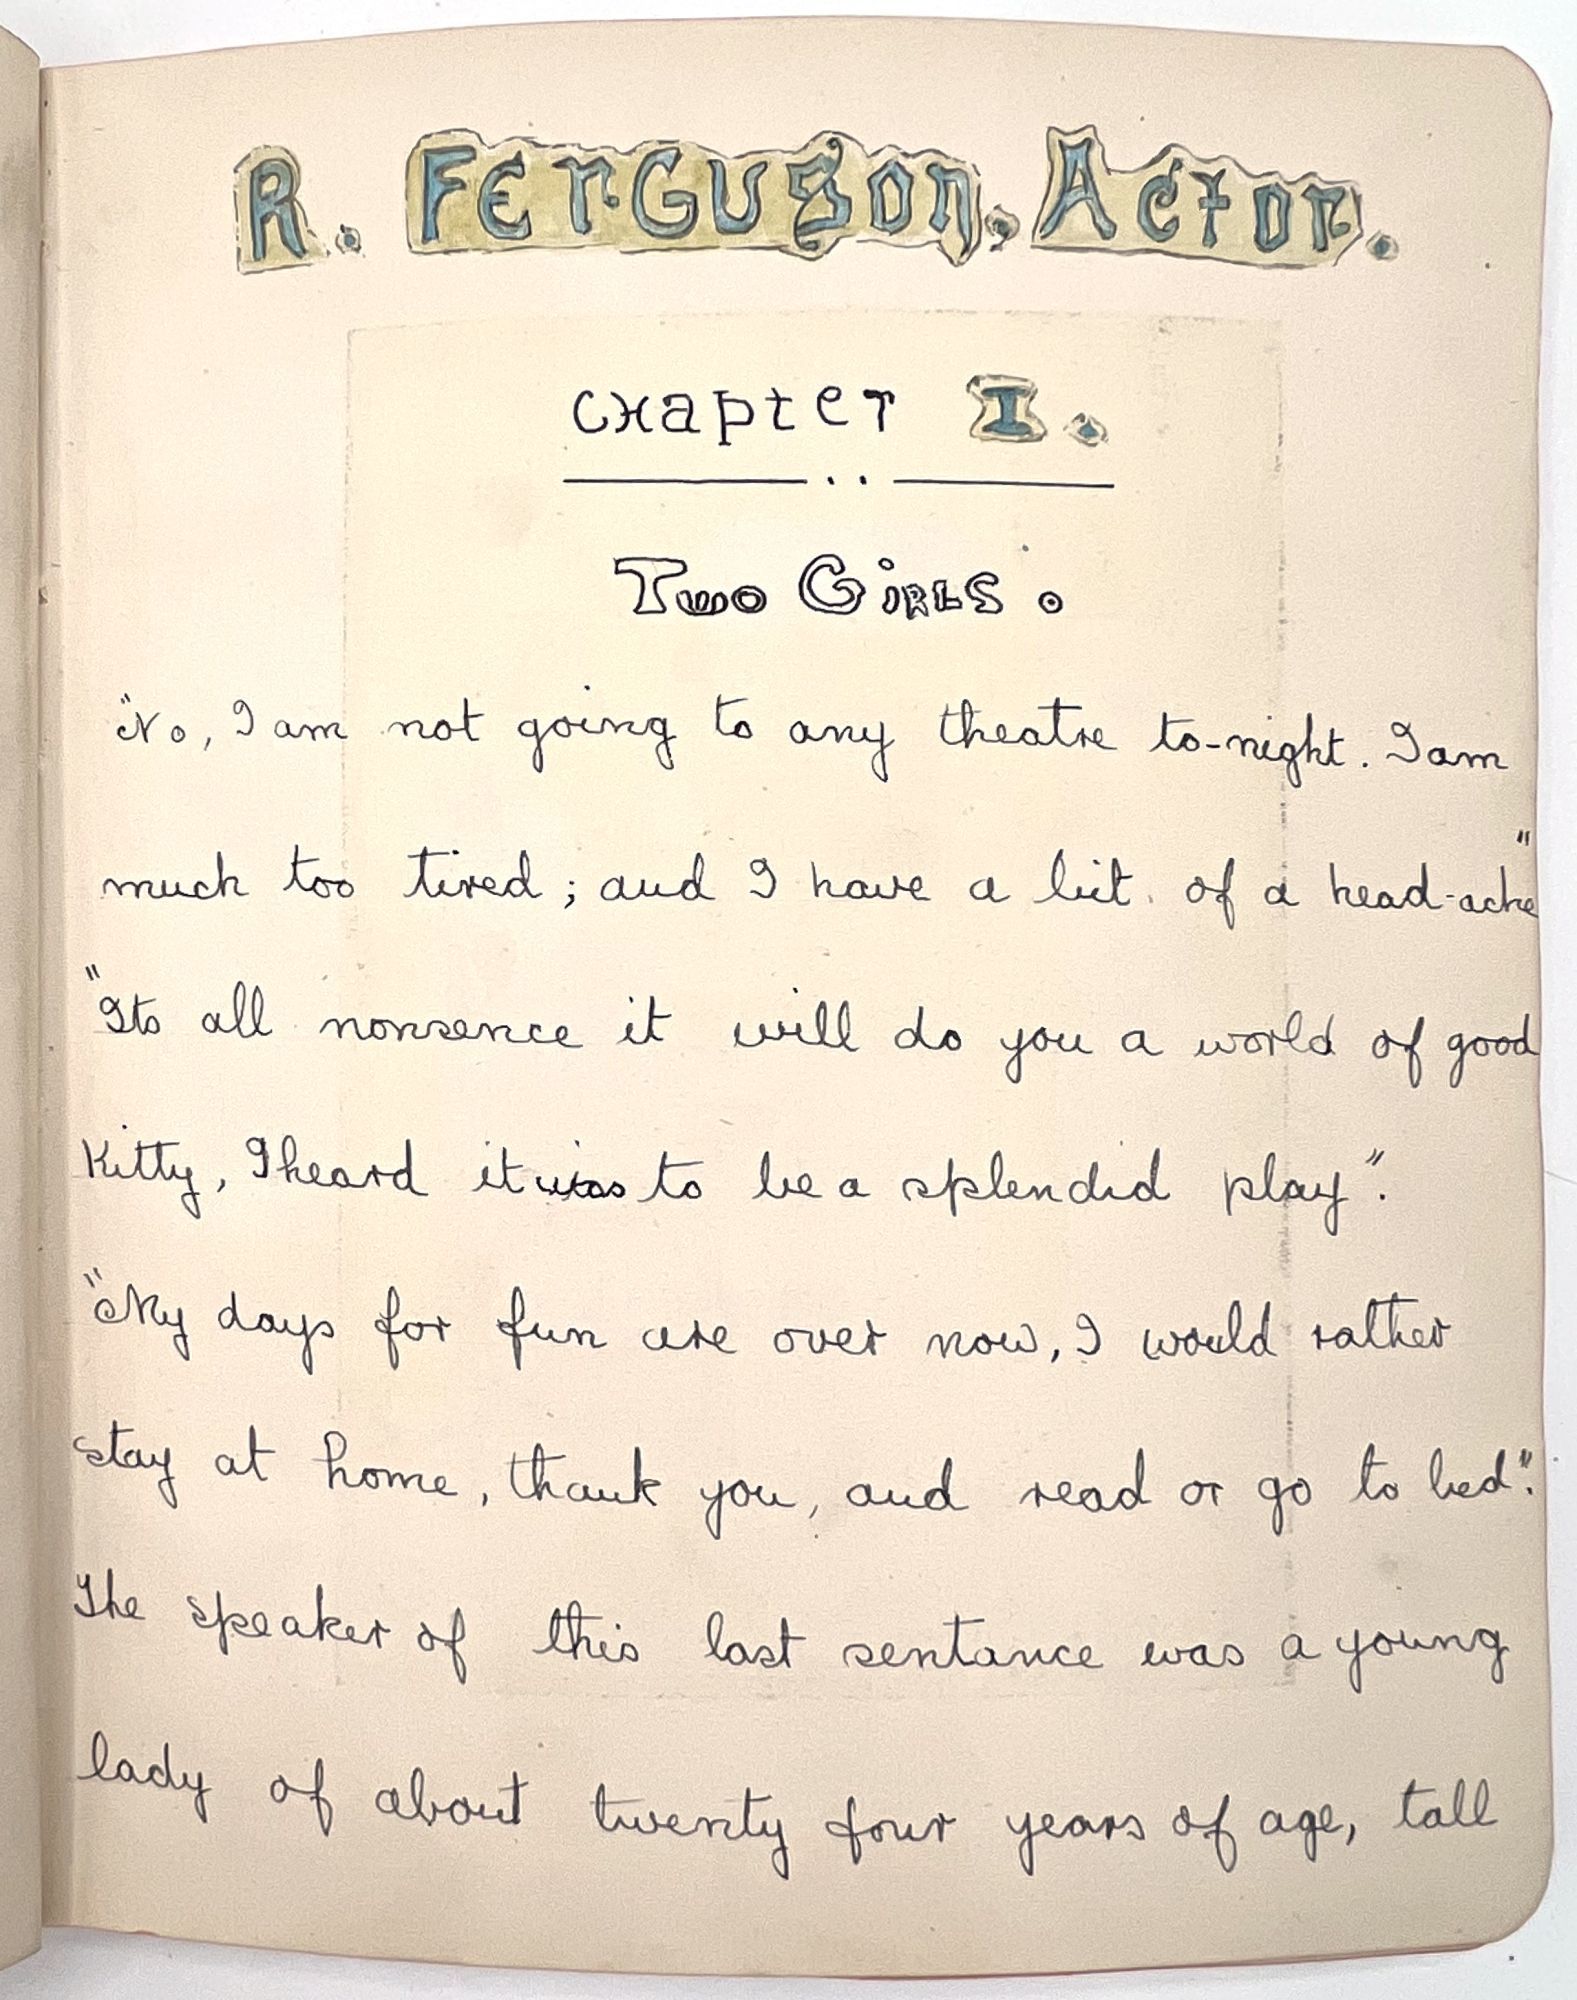 R. Ferguson. Actor.
Chapter I.
Two Girls.
"No, I am not going to any theatre to-night. I am
much too tired; and I have a bit of a head-ache"
"Its all nonsence it will do you a world of good
Kitty, I heard it was to be a splendid play".
"My days for fun are over now, I would rather
stay at home, thank you, and read or go to bed".
The speaker of this last sentance was a young
lady of about twenty four years of age, tall